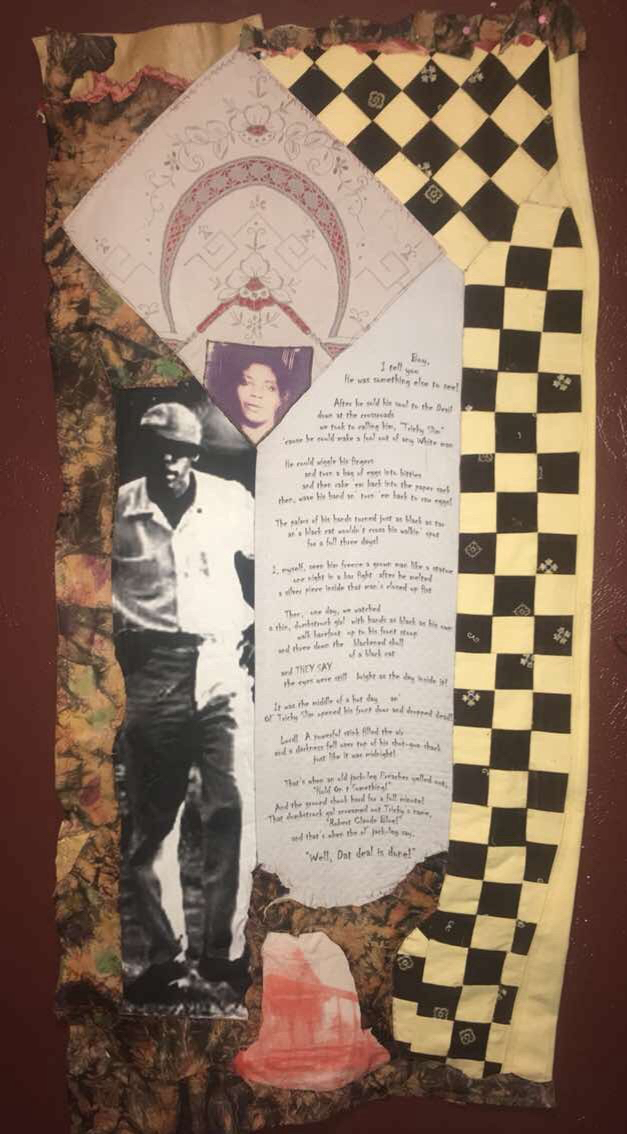 Boy,
I tell you
He was something else to see!
After he sold his soul to the Devil
down at the crossroads
we took to calling him, "Tricky Slim"
'cause he could make a fool out of any White man
He could wiggle his fingers
and turn a bag of eggs into bitties
and then take 'em back into the paper sack
then, wave his hand an' turn 'em back to raw eggs!
The palms of his hands turned just as black as tar
an' a black cat wouldn't cross his walkin' spot
for a full three days!
I, myself, seen him freeze a grown man like a statue
one night in a bar fight after he melted
a silver piece inside that man's closed up fist
Then, one day, we watched
a thin, dumbstruck girl with hands as black as his own
walk barefoot up to his front stoop
and throw down the blackened skull
of a black cat
and THEY SAY
the eyes were still bright as the day inside it!
It was the middle of a hot day an'
Ol' Tricky Slim opened his front door and dropped dead!
Lord! A powerful stink filled the air
and a darkness fell over top of his shot-gun shack
just like it was midnight!
That's when an old jack-leg Preacher yelled out,
"Hold On t'Something!"
And the ground shook hard for a full minute!
That dumbstruck girl screamed out Tricky's name,
"Robert Claude Bling!"
and that's when the ol' jack-leg say,
"Well, Dat deal is done!"